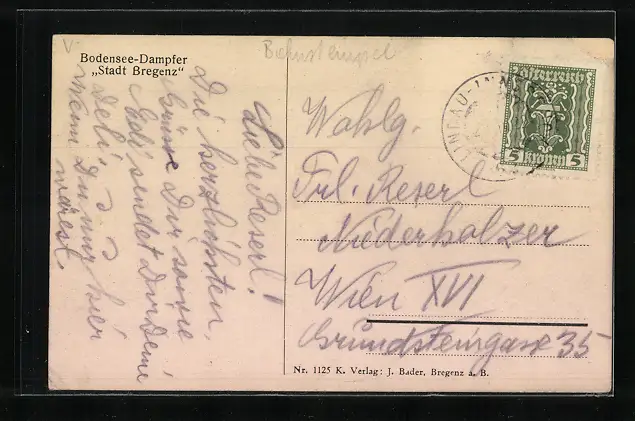 V
Bodensee-Dampfer
„Stadt Bregenz“
Bahnstempel
Liebe Reserl!
Die herzlichsten
Grüsse Dir sowie
Edi sendet Dir Deine
Deli.
Wenn Du nur hier
wärest.
LINDAU-INNS
Österreich
5 Kronen 5
Wohlg.
Frl. Reserl
Niederholzer
Wien XVI
Grundsteingasse 35
Nr. 1125 K. Verlag: J. Bader, Bregenz a. B.